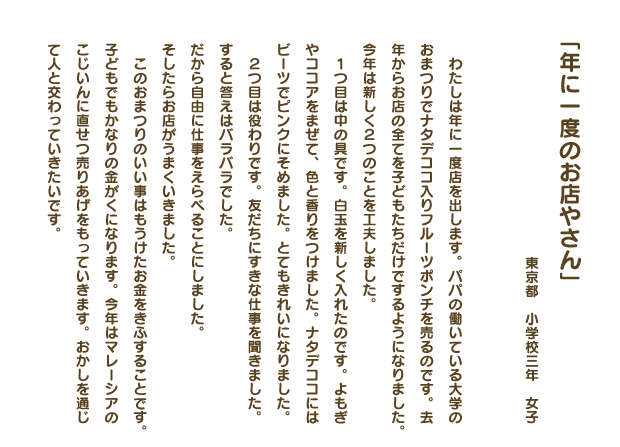 「年に一度のお店やさん」
東京都　小学校三年　女子
わたしは年に一度店を出します。パパの働いている大学の
おまつりでナタデココ入りフルーツポンチを売るのです。去
年からお店の全てを子どもたちだけでするようになりました。
今年は新しく２つのことを工夫しました。
１つ目は中の具です。白玉を新しく入れたのです。よもぎ
やココアをまぜて、色と香りをつけました。ナタデココには
ビーツでピンクにそめました。とてもきれいになりました。
２つ目は役わりです。友だちにすきな仕事を聞きました。
すると答えはバラバラでした。
だから自由に仕事をえらべることにしました。
そしたらお店がうまくいきました。
このおまつりのいい事はもうけたお金をきふすることです。
子どもでもかなりの金がくになります。今年はマレーシアの
こじいんに直せつ売りあげをもっていきます。おかしを通じ
て人と交わっていきたいです。